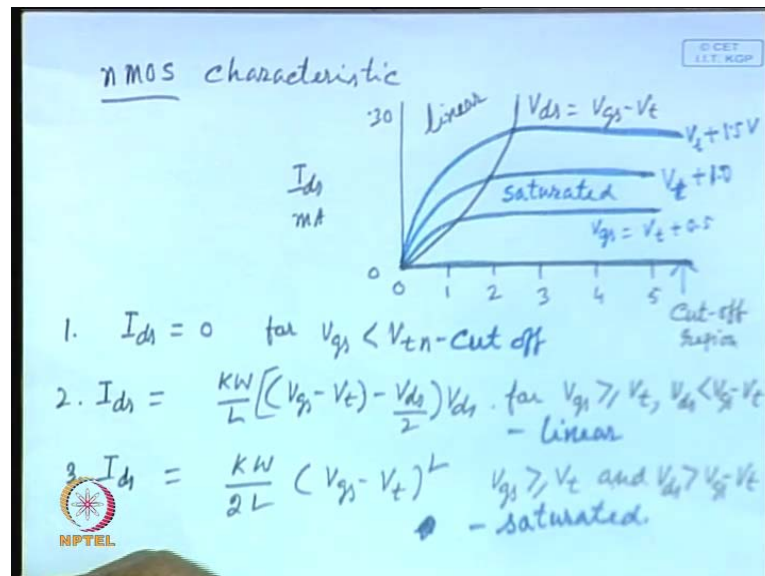 © CET
I.I.T. KGP
nMOS characteristic
.30
linear
Vds = Vgs - Vt
Vt + 1.5V
Ids
mA
Vt + 1.0
saturated
Vgs = Vt + 0.5
0
0 1 2 3 4 5
Cut-off
region
1. Ids = 0 for Vgs < Vtn - Cut off
2. Ids = KW/L [(Vgs - Vt) - Vds/2) Vds . for Vgs ⩾ Vt, Vds < Vgs - Vt
- linear
3. Ids = KW/2L (Vgs - Vt)² Vgs ⩾ Vt and Vds > Vgs - Vt
- saturated.
NPTEL